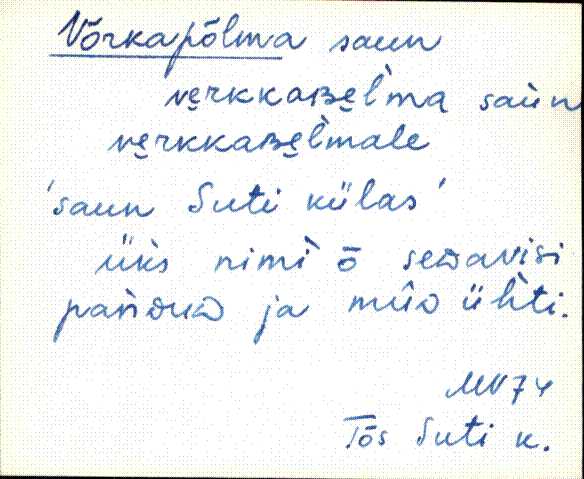 Võrkapõlma saun
ve̮rkkaʙe̮l'ma̮ saùn
ve̮rkkaʙe̮l'male
'saun Suti külas'
üks nimì ō seᴅavisi
pańᴅuᴅ ja mūᴅ ühti.
MV74
Tõs Suti k.